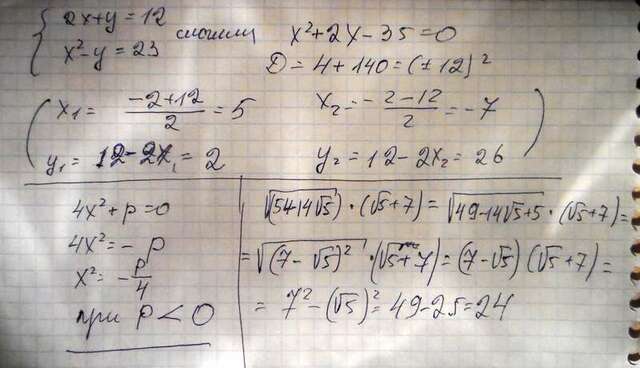 { 2x+y=12
x²-y=23 сложили x²+2x-35=0
D=4+140=(±12)²
x₁= (-2+12)/2 =5 x₂= (-2-12)/2 =-7
y₁= 12-2x₁=2 y₂=12-2x₂=26
4x²+p=0
4x²=-p
x²=-p/4
при p<0
√(54-14√5)·(√5+7)=√(49-14√5+5)·(√5+7)=
=√((7-√5)²)·(√5+7)=(7-√5)(√5+7)=
=7²-(√5)²=49-25=24